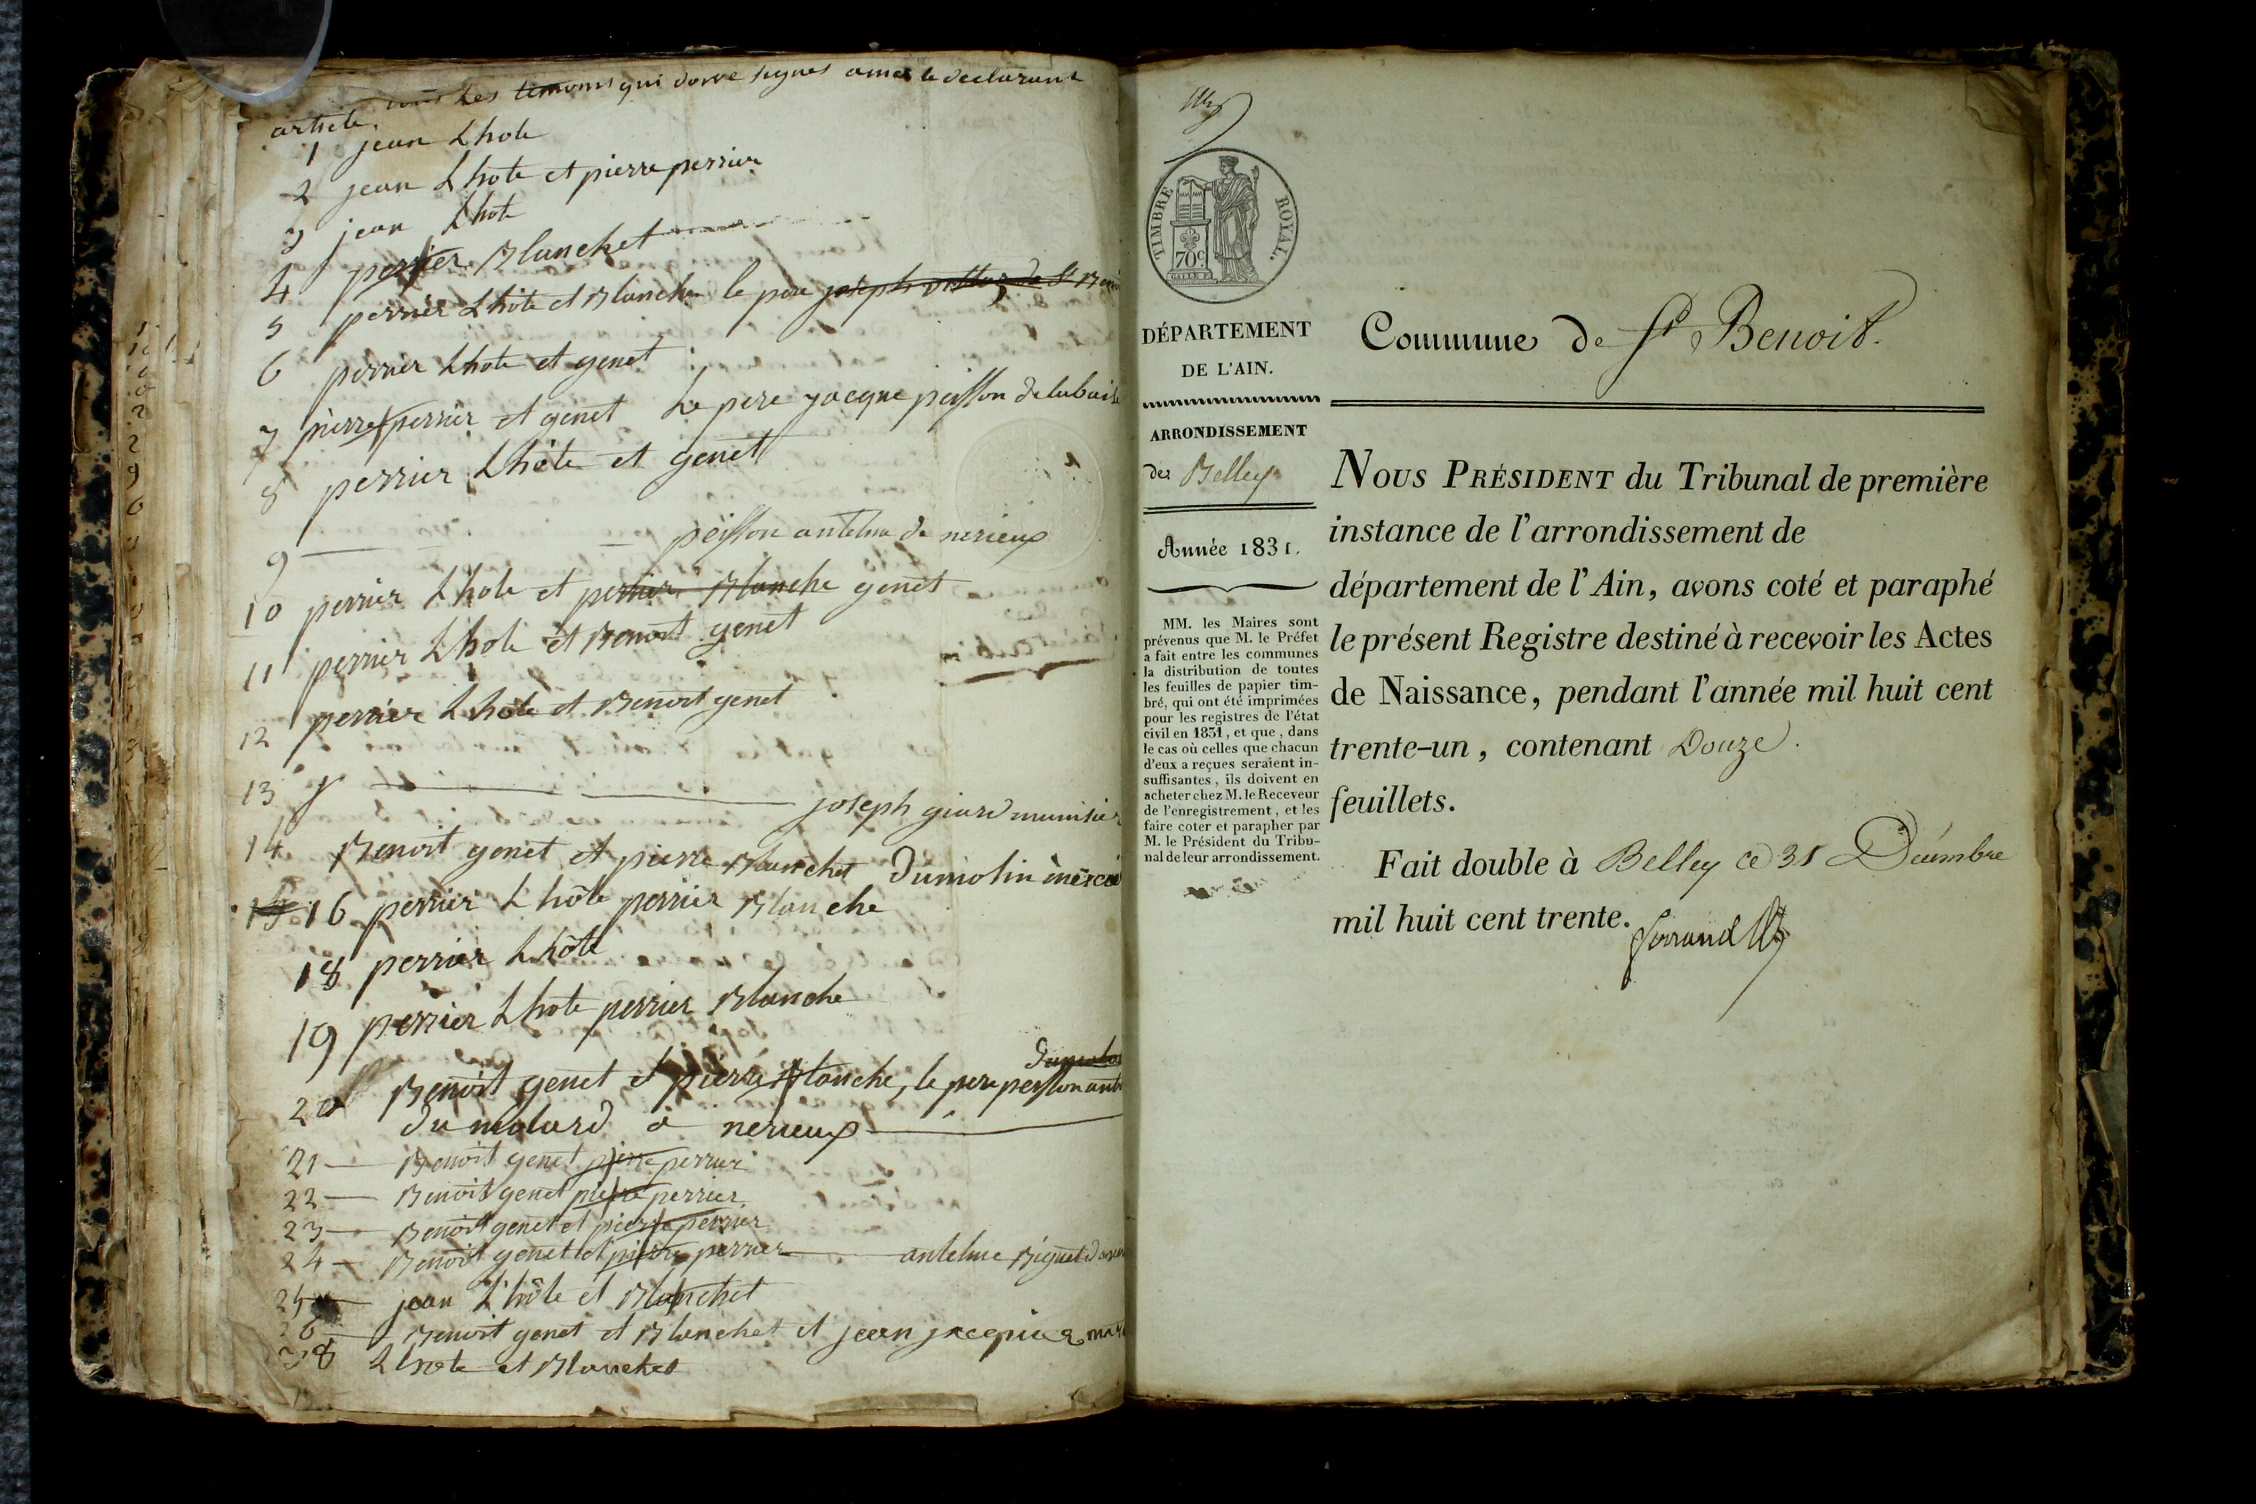 article Les temoins qui doive signes avec le declarant
1 jean Lhote
2 jean Lhote et pierre perrier
3 jean Lhote
4 perrier Blanchet
5 perrier Lhôte et Blanche le pere joseph de St
6 perrier Lhote et genet
7 pierre perrier et genet Le pere jacque peisson
8 perrier Lhôte et genet
9 peisson antelme de nerieux
10 perrier Lhote et perrier Blanche genet
11 perrier Lhote et Benoit genet
12 perrier Lhôte et Benoit genet
13 joseph giard
14 Benoit genet et pierre Blanchet Dumolin
15 16 perrier Lhôte perrier Blanche
18 perrier Lhôte
19 perrier Lhote perrier Blanche
20 Benoit genet et pierre Blanche, le pere peisson
du molard à nerieux
21 — Benoit genet pierre perrier
22 — Benoit genet pierre perrier
23 — Benoit genet et pierre perrier
24 — Benoit genet et pierre perrier antelme
25 jean Lhôte et Blanchet
26 Benoit genet et Blanchet et jean jacquier
28 Lhote et Blanchet
TIMBRE ROYAL.
70c
DÉPARTEMENT
DE L'AIN.
ARRONDISSEMENT
de Belley
Année 1831.
MM. les Maires sont
prévenus que M. le Préfet
a fait entre les communes
la distribution de toutes
les feuilles de papier tim-
bré, qui ont été imprimées
pour les registres de l'état
civil en 1831, et que, dans
le cas où celles que chacun
d'eux a reçues seraient in-
suffisantes, ils doivent en
acheter chez M. le Receveur
de l'enregistrement, et les
faire coter et parapher par
M. le Président du Tribu-
nal de leur arrondissement.
Commune de St Benoit.
NOUS PRÉSIDENT du Tribunal de première
instance de l'arrondissement de
département de l'Ain, avons coté et paraphé
le présent Registre destiné à recevoir les Actes
de Naissance, pendant l'année mil huit cent
trente-un, contenant Douze.
feuillets.
Fait double à Belley ce 31 Décembre
mil huit cent trente.